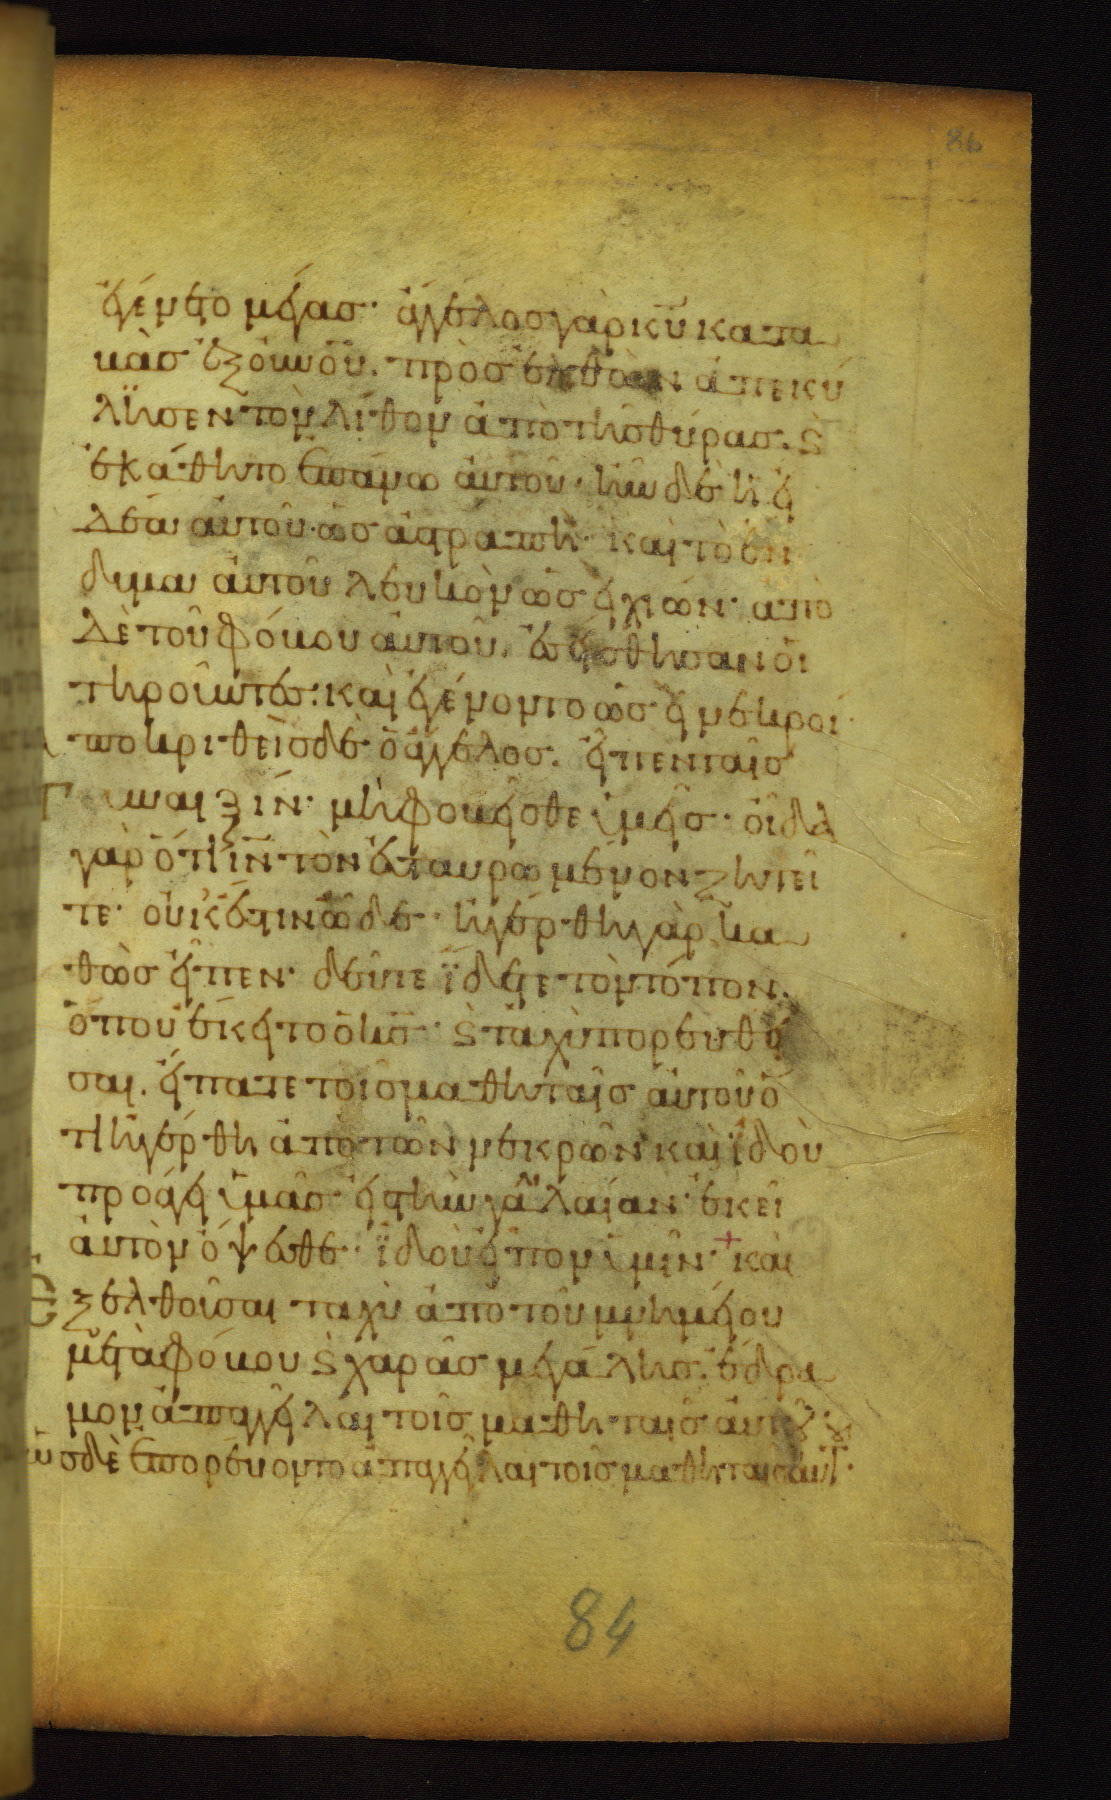 86
ἐγένετο μέγας· ἄγγελος γὰρ κυ κατα
βὰς ἐξ ὀυνοῦ. προσελθὼν ἀπεκύ
λϊησεν τὸν λίθον ἀπὸ τῆς θύρας. ϛ
ἐκάθητο ἐπάνω ἀυτοῦ· ἦν δὲ ἡ εἰ
δέα ἀυτοῦ· ὡς ἀστραπὴ· καὶ τὸ ἔν
δυμα ἀυτοῦ λευκὸν ὡσεὶ χιών· απὸ
δὲ τοῦ φόβου ἀυτοῦ. ἐσείσθησαν ὁι
τηροῦντες· καὶ ἐγένοντο ὡσεὶ νεκροί·
ποκριθεὶς δὲ ὁ ἄγγελος. εἶπεν ταῖς
γυναιξίν· μὴ φοβεῖσθε ὑμεῖς· ὀῖδα
γὰρ ὅτι ιν τὸν ἐσταυρωμένον ζητεῖ
τε· οὐκ ἔστιν ὧδε· ἠγέρθη γὰρ κα
θὼς εἶπεν· δεῦτε ϊδετε τὸν τόπον.
ὅπου ἔκειτο ὁ κς· ϛ ταχὺ πορευθεῖ
σαι. εἴπατε τοῖς μαθηταῖς ἀυτοῦ ὅ
τι ἠγέρθη ἀπὸ τῶν νεκρῶν· καὶ ἰδοὺ
προάγει ὑμᾶς εἰς τὴν γαλιλαίαν· ἐκεῖ
ἀυτὸν ὄψεσθε· ϊδοὺ εἶπον ὑμῖν + καὶ
ἐξελθοῦσαι ταχὺ ἀπο τοῦ μνημείου
μετὰ φόβου ϛ χαρᾶς μεγάλης. ἔδρα
μον ἀπαγγεῖλαι τοῖς μαθηταῖς ἀυτοῦ·
ὡς δὲ ἐπορεύοντο ἀπαγγεῖλαι τοῖς μαθηταις ἀυτ·
84